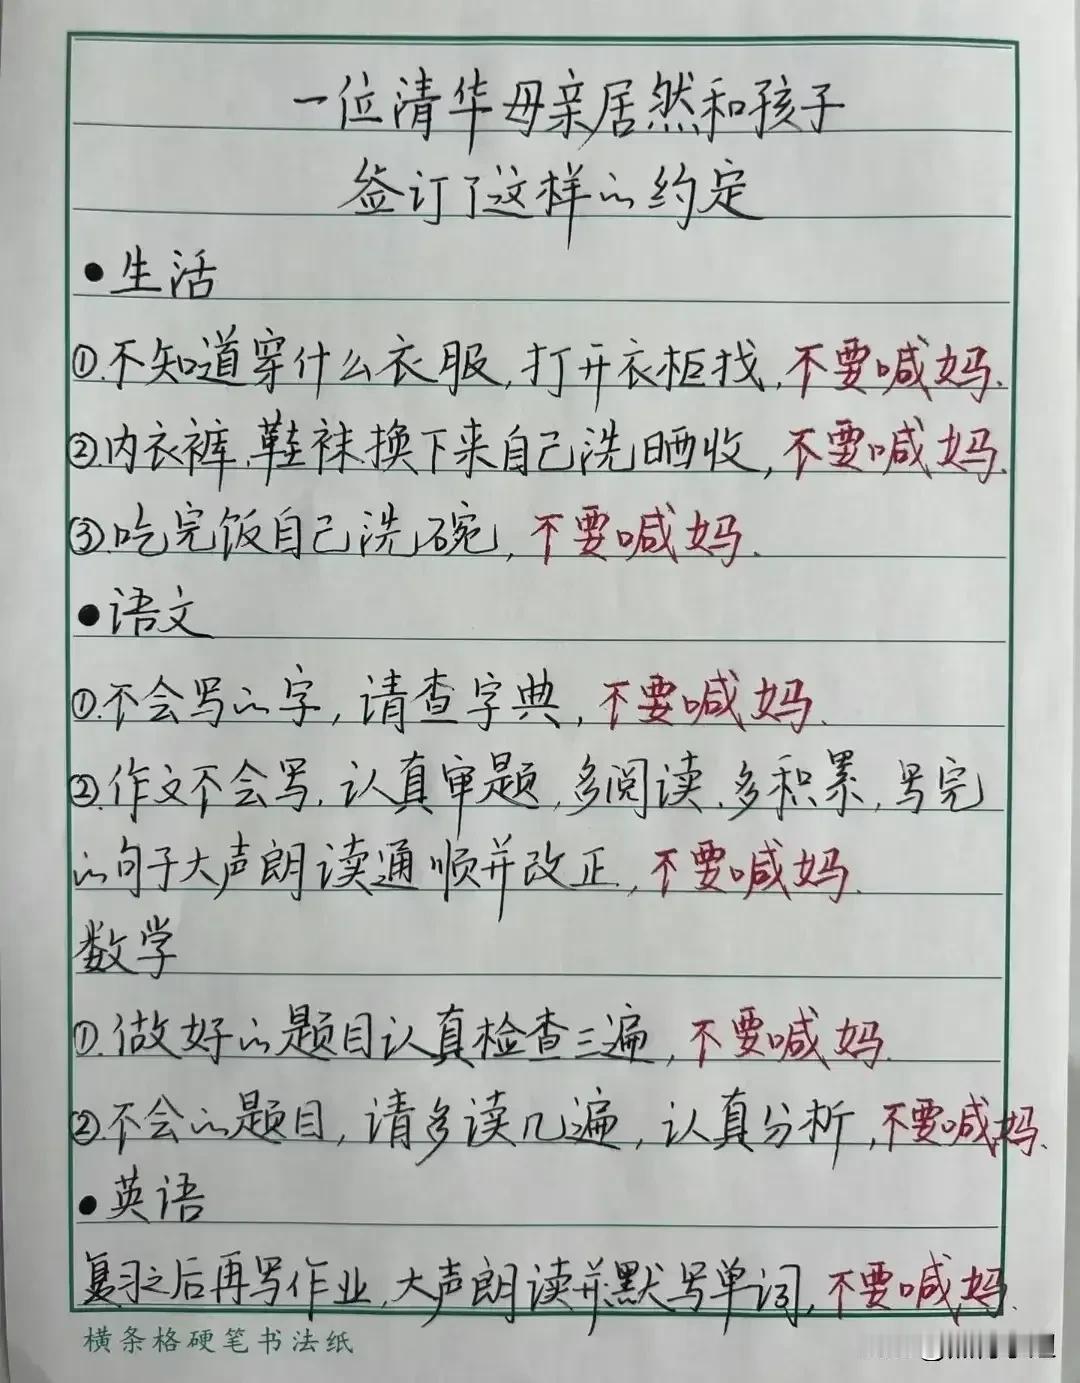 一位清华母亲居然和孩子
签订了这样的约定
●生活
①.不知道穿什么衣服,打开衣柜找,不要喊妈.
②.内衣裤.鞋袜.换下来自己洗晒收,不要喊妈.
③.吃完饭自己洗碗,不要喊妈.
●语文
①.不会写的字,请查字典,不要喊妈.
②.作文不会写,认真审题,多阅读.多积累,写完
的句子大声朗读通顺并改正,不要喊妈.
数学
①.做好的题目认真检查三遍,不要喊妈.
②.不会的题目,请多读几遍,认真分析,不要喊妈.
●英语
复习之后再写作业,大声朗读并默写单词,不要喊妈.
横条格硬笔书法纸